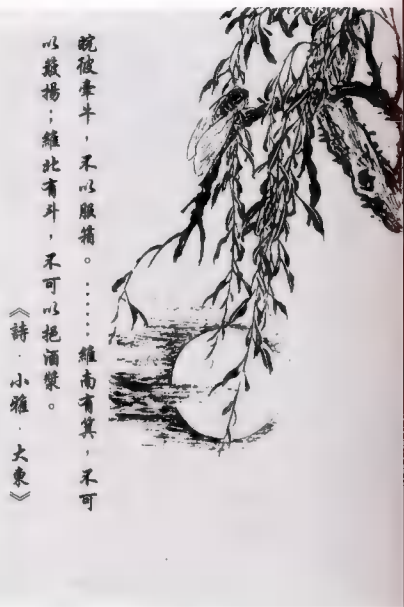 睆彼牽牛，不以服箱。……維南有箕，不可
以簸揚；維北有斗，不可以挹酒漿。
《詩·小雅·大東》